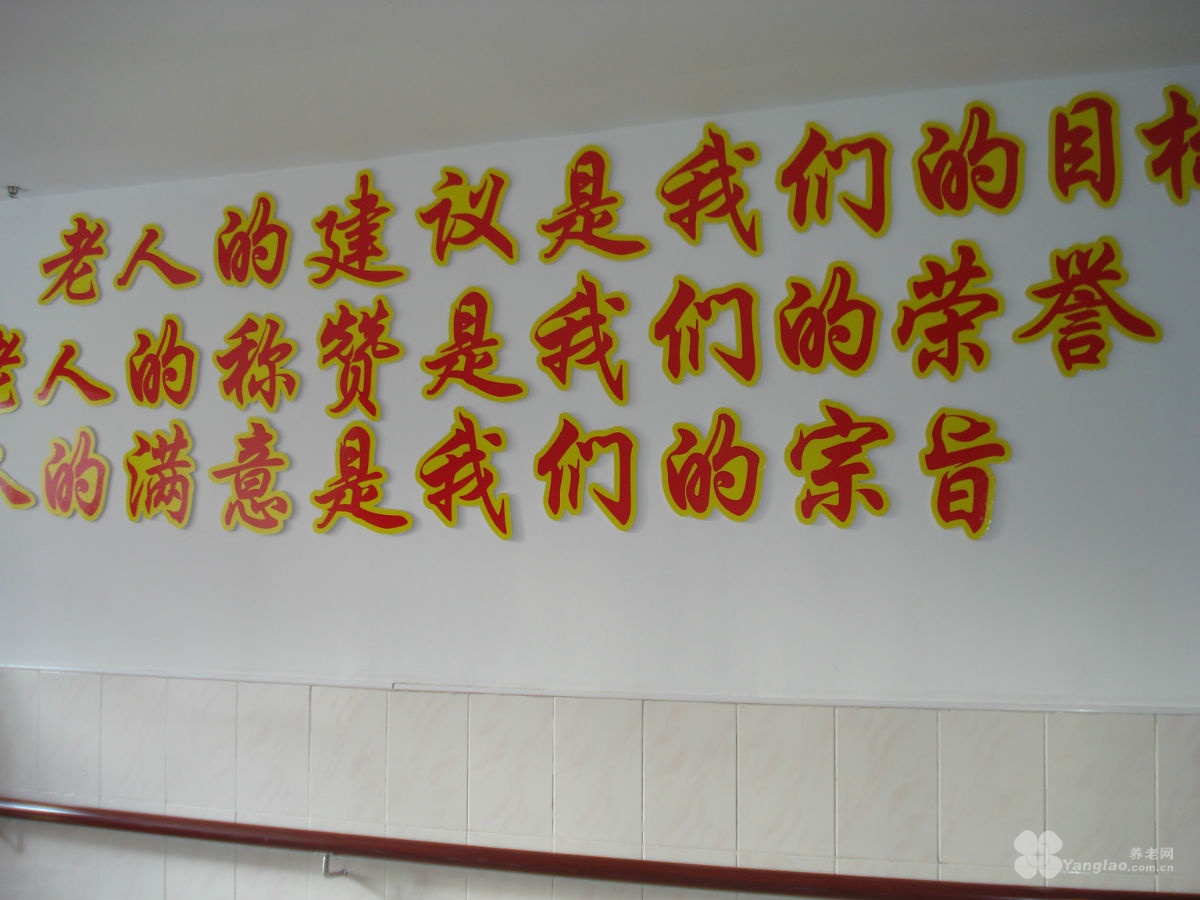 老人的建议是我们的目标
老人的称赞是我们的荣誉
人的满意是我们的宗旨
养老网
Yanglao.com.cn